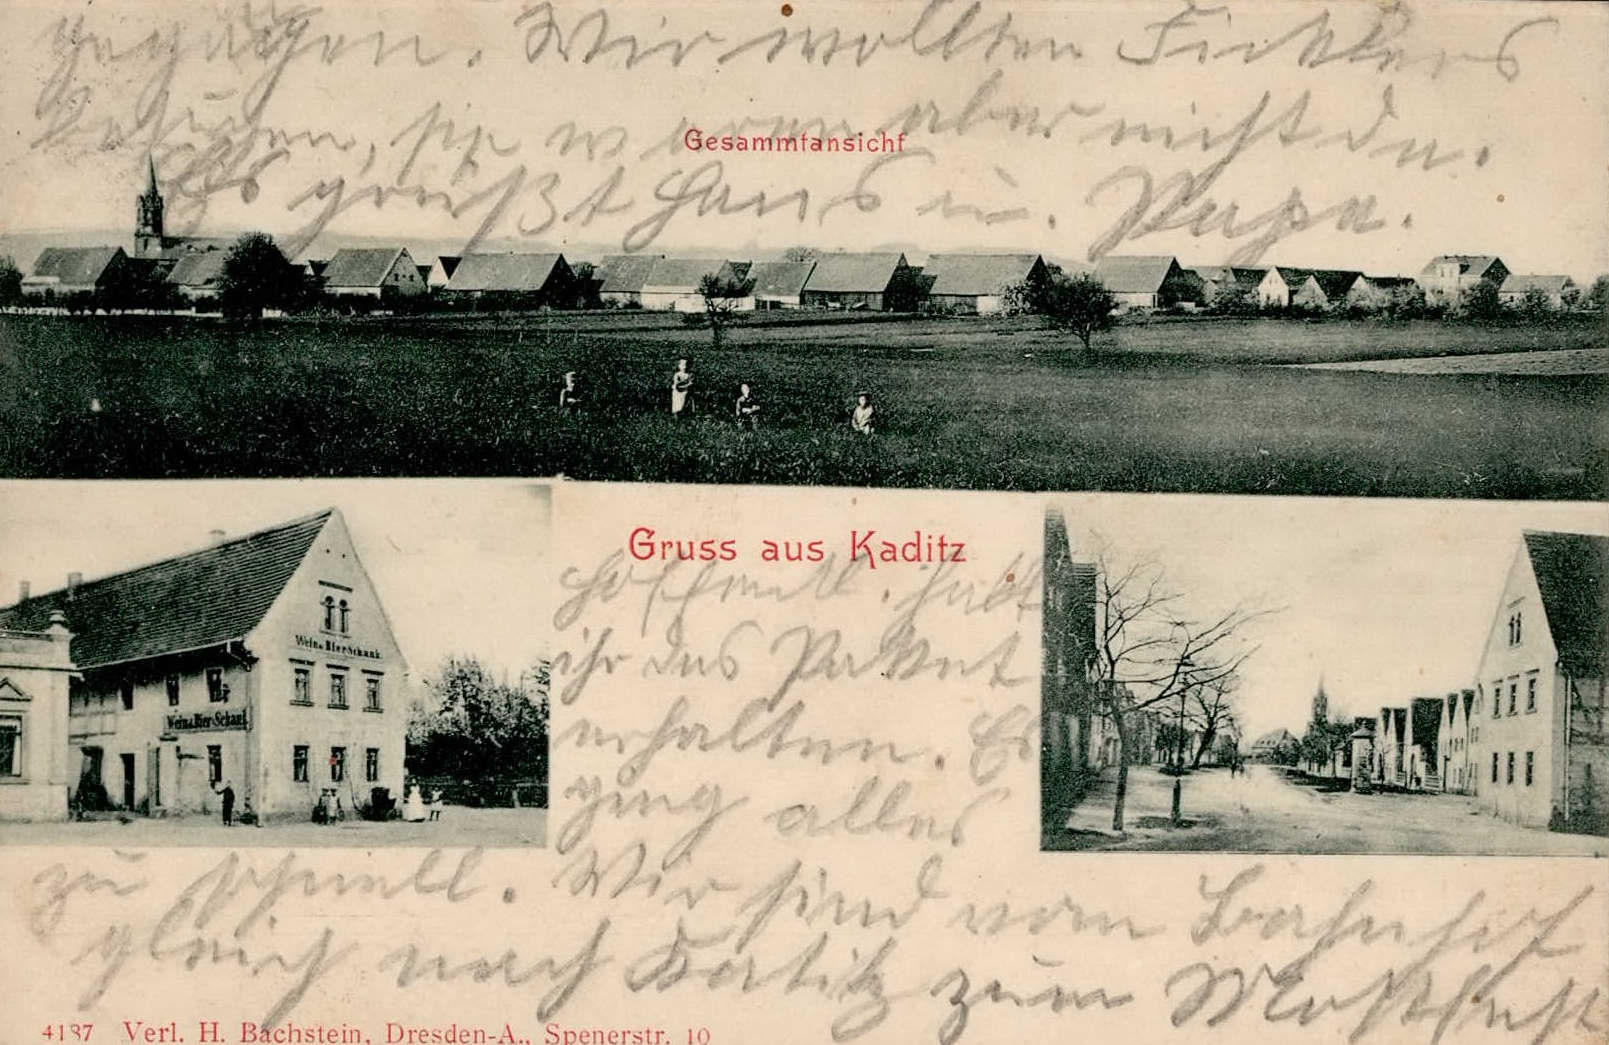 gegangen. Wir wollten Ficklers
besuchen, sie waren aber nicht da.
Gesammtansicht
Es grüßt Hans u. Papa.
Gruss aus Kaditz
Hoffentl. habt
ihr das Packet
erhalten. Es
ging alles
zu schnell. Wir sind vom Bahnhof
gleich nach Kaditz zum Mostfest
Wein & Bier-Schank
Wein & Bier-Schank
4137 Verl. H. Bachstein, Dresden-A., Spenerstr. 10